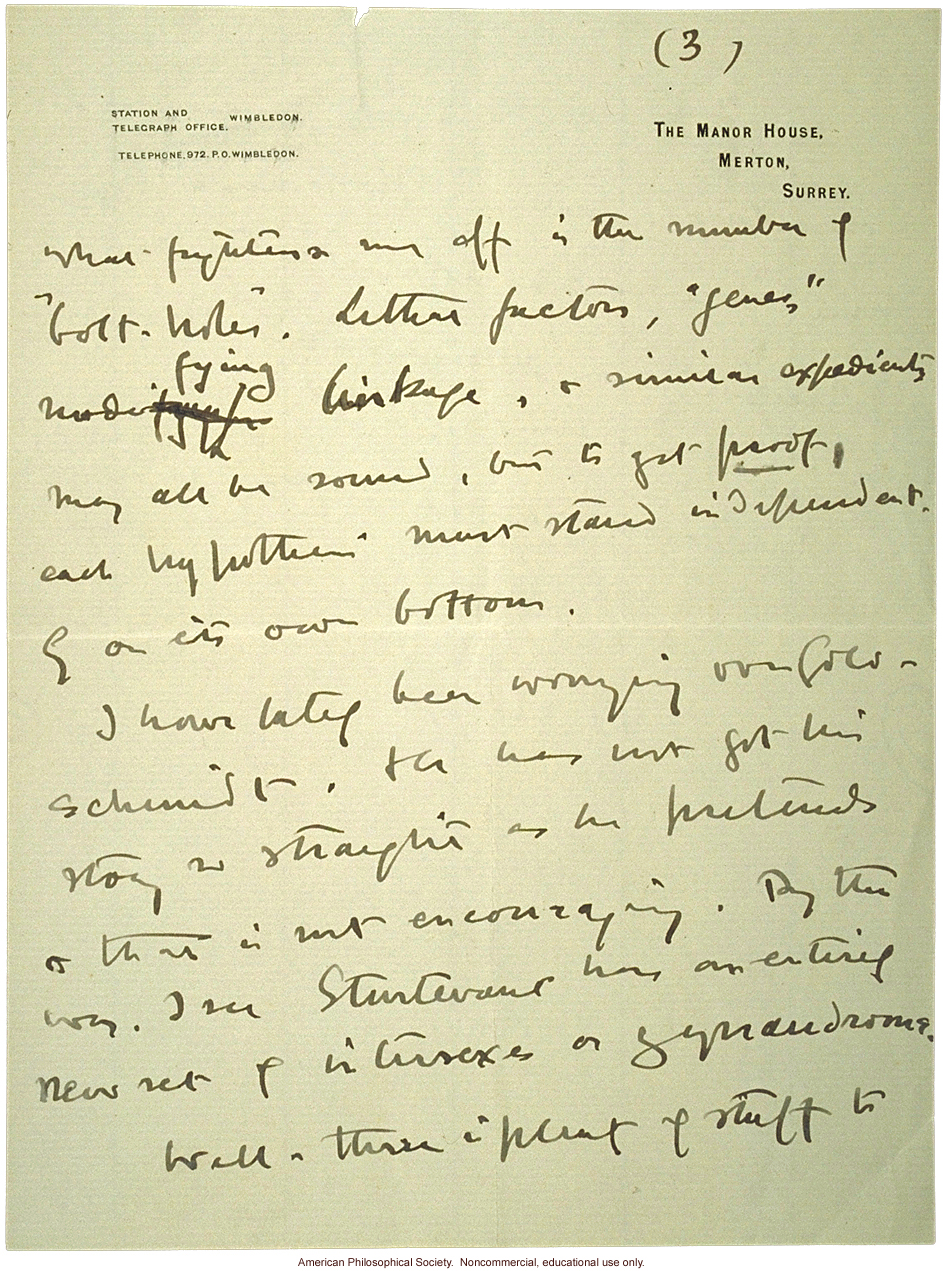 (3)
STATION AND
TELEGRAPH OFFICE. WIMBLEDON.
TELEPHONE, 972. P.O. WIMBLEDON.
THE MANOR HOUSE,
MERTON,
SURREY.
what frightens me off is the number of
"bolt-holes". Lethal factors, "genes"
modifying linkage, & similar expedients
may all be sound, but to get proof,
each hypothesis must stand independent-
ly on its own bottom.
I have lately been worrying over Gold-
schmidt. He has not got his
story so straight as he pretends
& that is not encouraging. By the
way. I see Sturtevant has an entirely
new set of intersexes or gynandroms.
Well - there is plenty of stuff to
American Philosophical Society. Noncommercial, educational use only.